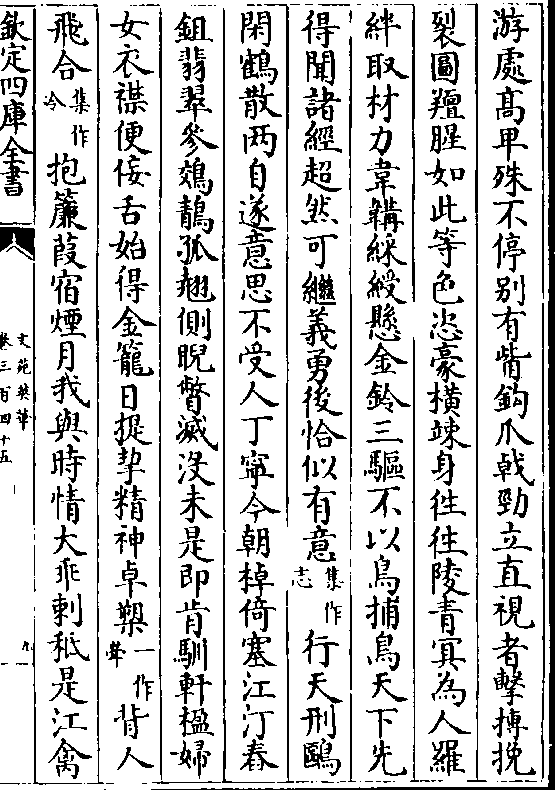 游處髙卑殊不停别有觜鈎爪㦸勁立直視者擊摶挽
裂圖羶腥如此等色恣豪横竦身徃徃陵青㝠為人羅
絆取材力韋韝綵綬懸金鈴三驅不以鳥捕鳥天下先
得聞諸經超然可繼義勇後恰似有意集作志行天刑鷗
閑鶴散两自遂意思不受人丁寧今朝棹倚塞江汀舂
鉏翡翠參鵁鶄孤翹側睨瞥滅没未是即肯馴軒楹婦
女衣襟便佞舌始得金籠日提挈精神卓槊一作犖背人
飛合集作冷抱蘆葭宿煙月我與時情大乖剌秪是江禽
欽定四庫全書
文苑英華
卷三百四十五
九